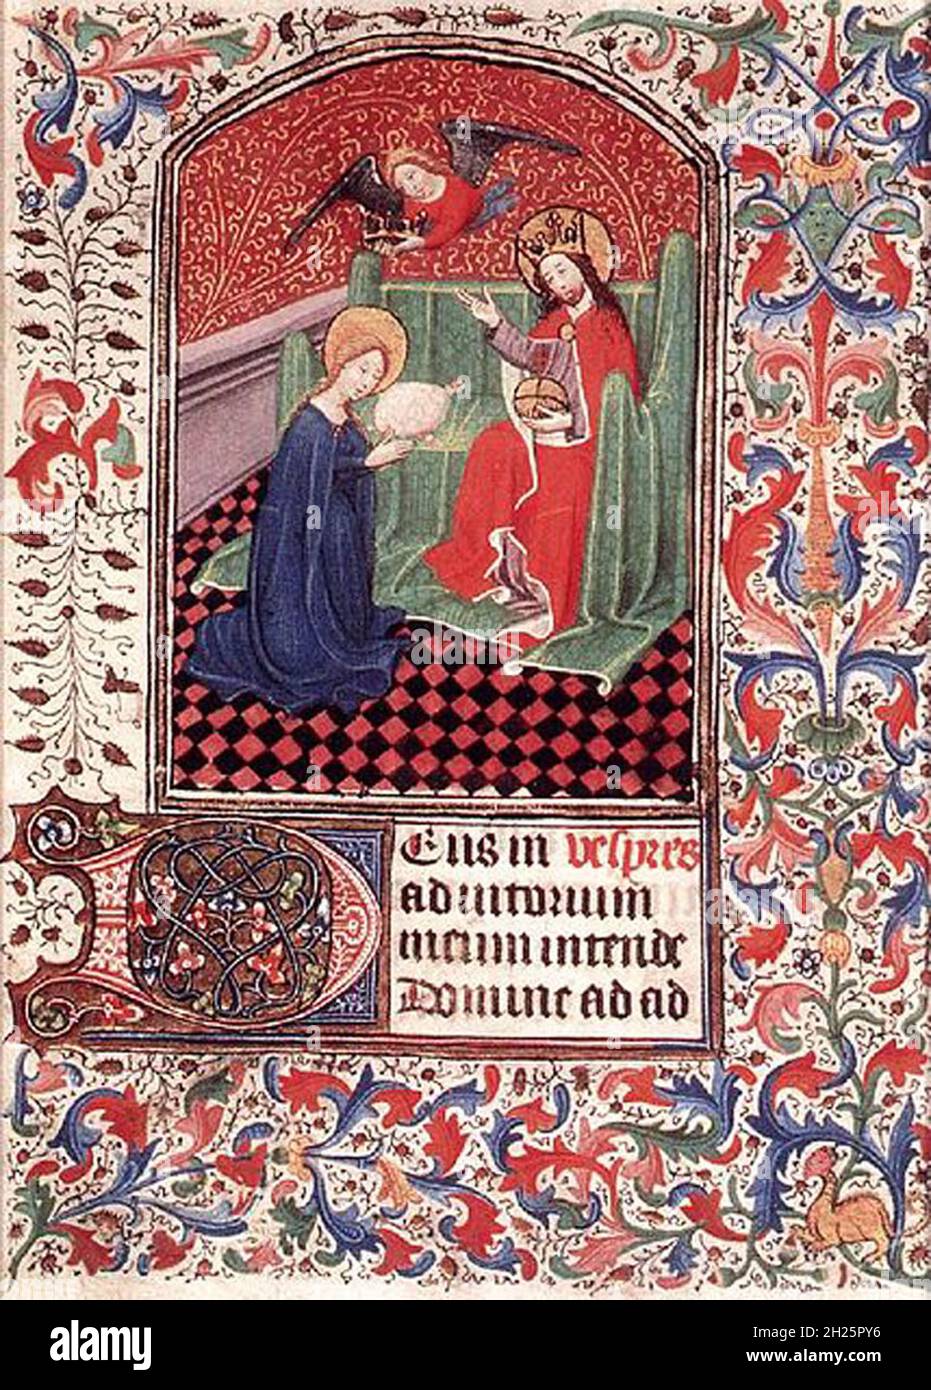 Deus in vespres
adiutorium
meum intende
Domine ad ad
alamy
Image ID: 2H25PY6
www.alamy.com